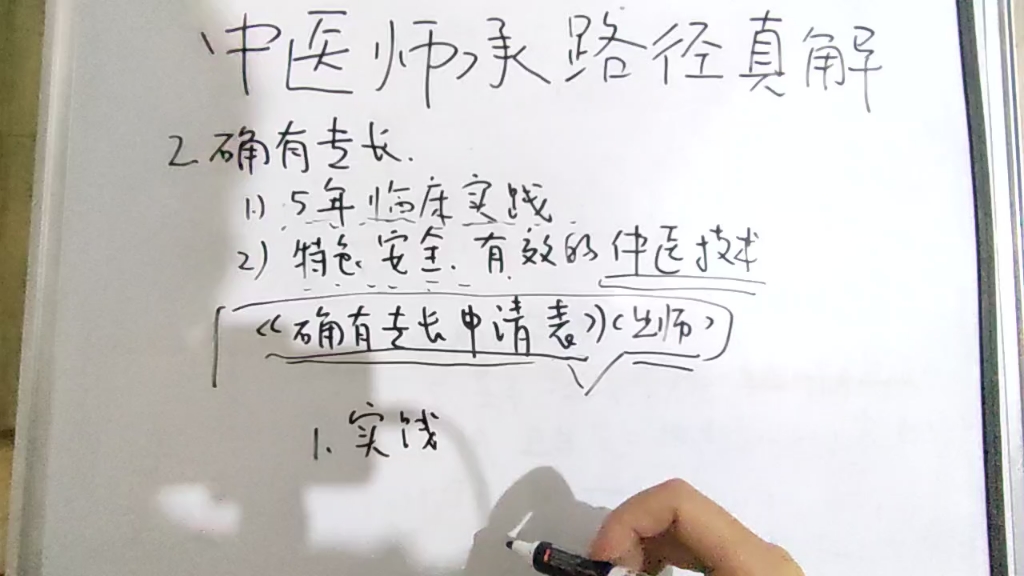 中医师承路径真解
2.确有专长.
1.) 5年临床实践
2) 特色.安全.有效的中医技术
《确有专长申请表》(出师)
1.实践